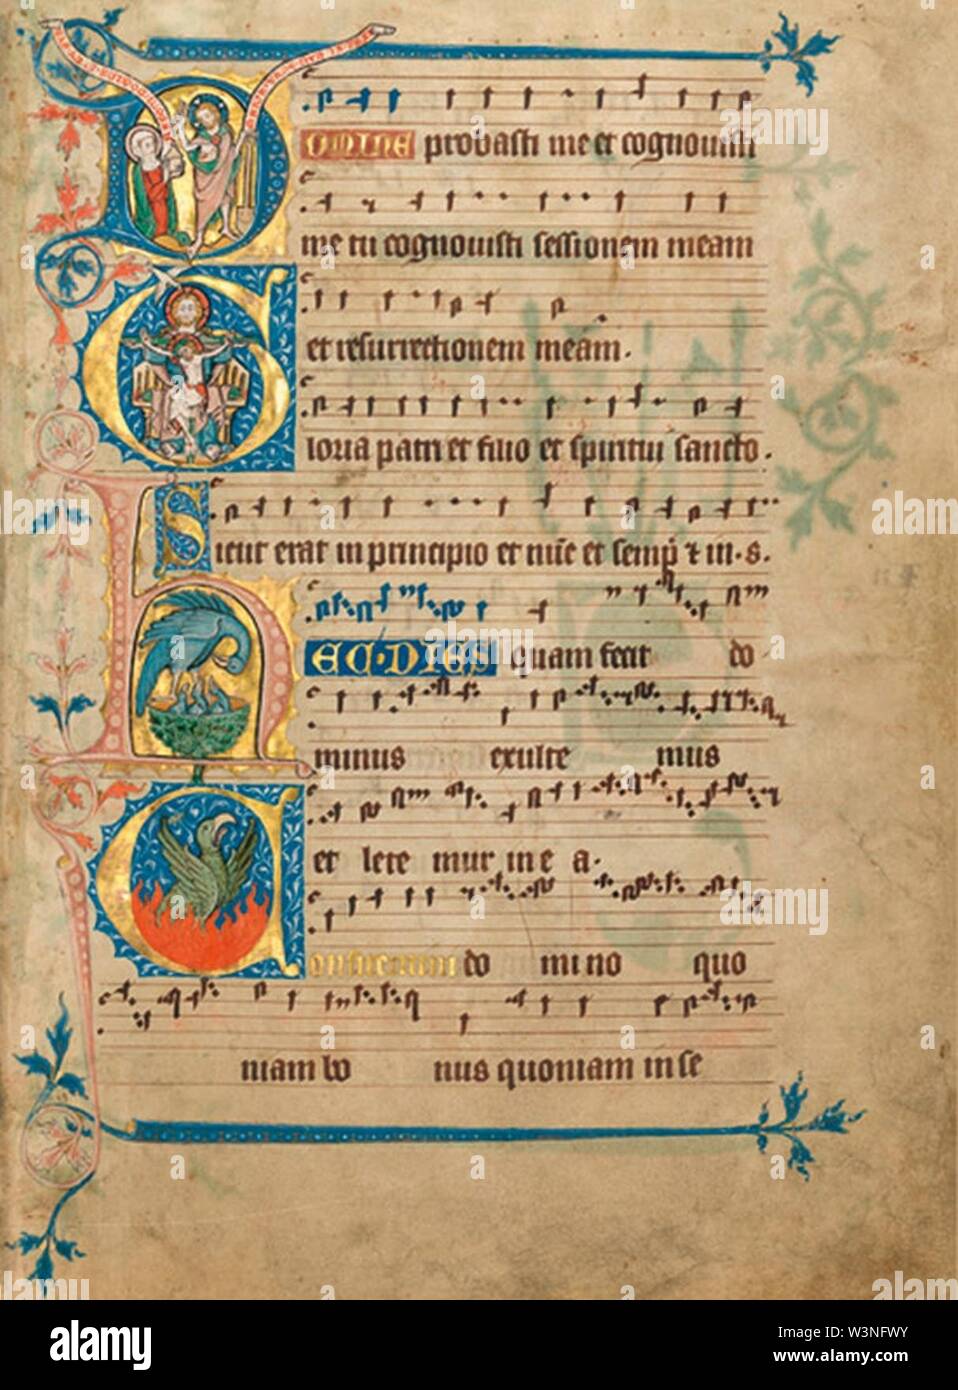 DOMINE probasti me et cognouisti
me tu cognouisti sessionem meam
et resurrectionem meam.
Gloria patri et filio et spiritui sancto.
Sicut erat in principio et nūc et semp̱ ⁊ in. s.
HEC DIES quam fecit do
minus exulte mus
et lete mur in e a.
Confitemini do mino quo
niam bo nus quoniam in se
a alamy stock photo
alamy
W3NFWY
www.alamy.com